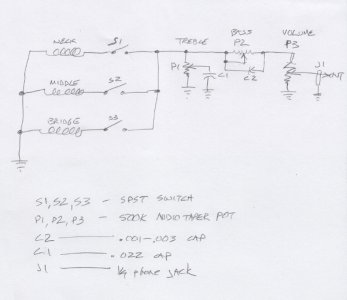 NECK S1
TREBLE
BASS
P2
VOLUME
P3
P1
C1
C2
J1
MIDDLE S2
BRIDGE S3
S1, S2, S3 - SPST SWITCH
P1, P2, P3 - 500K AUDIO TAPER POT
C2 .001-.003 CAP
C1 .022 CAP
J1 1/4 phone jack